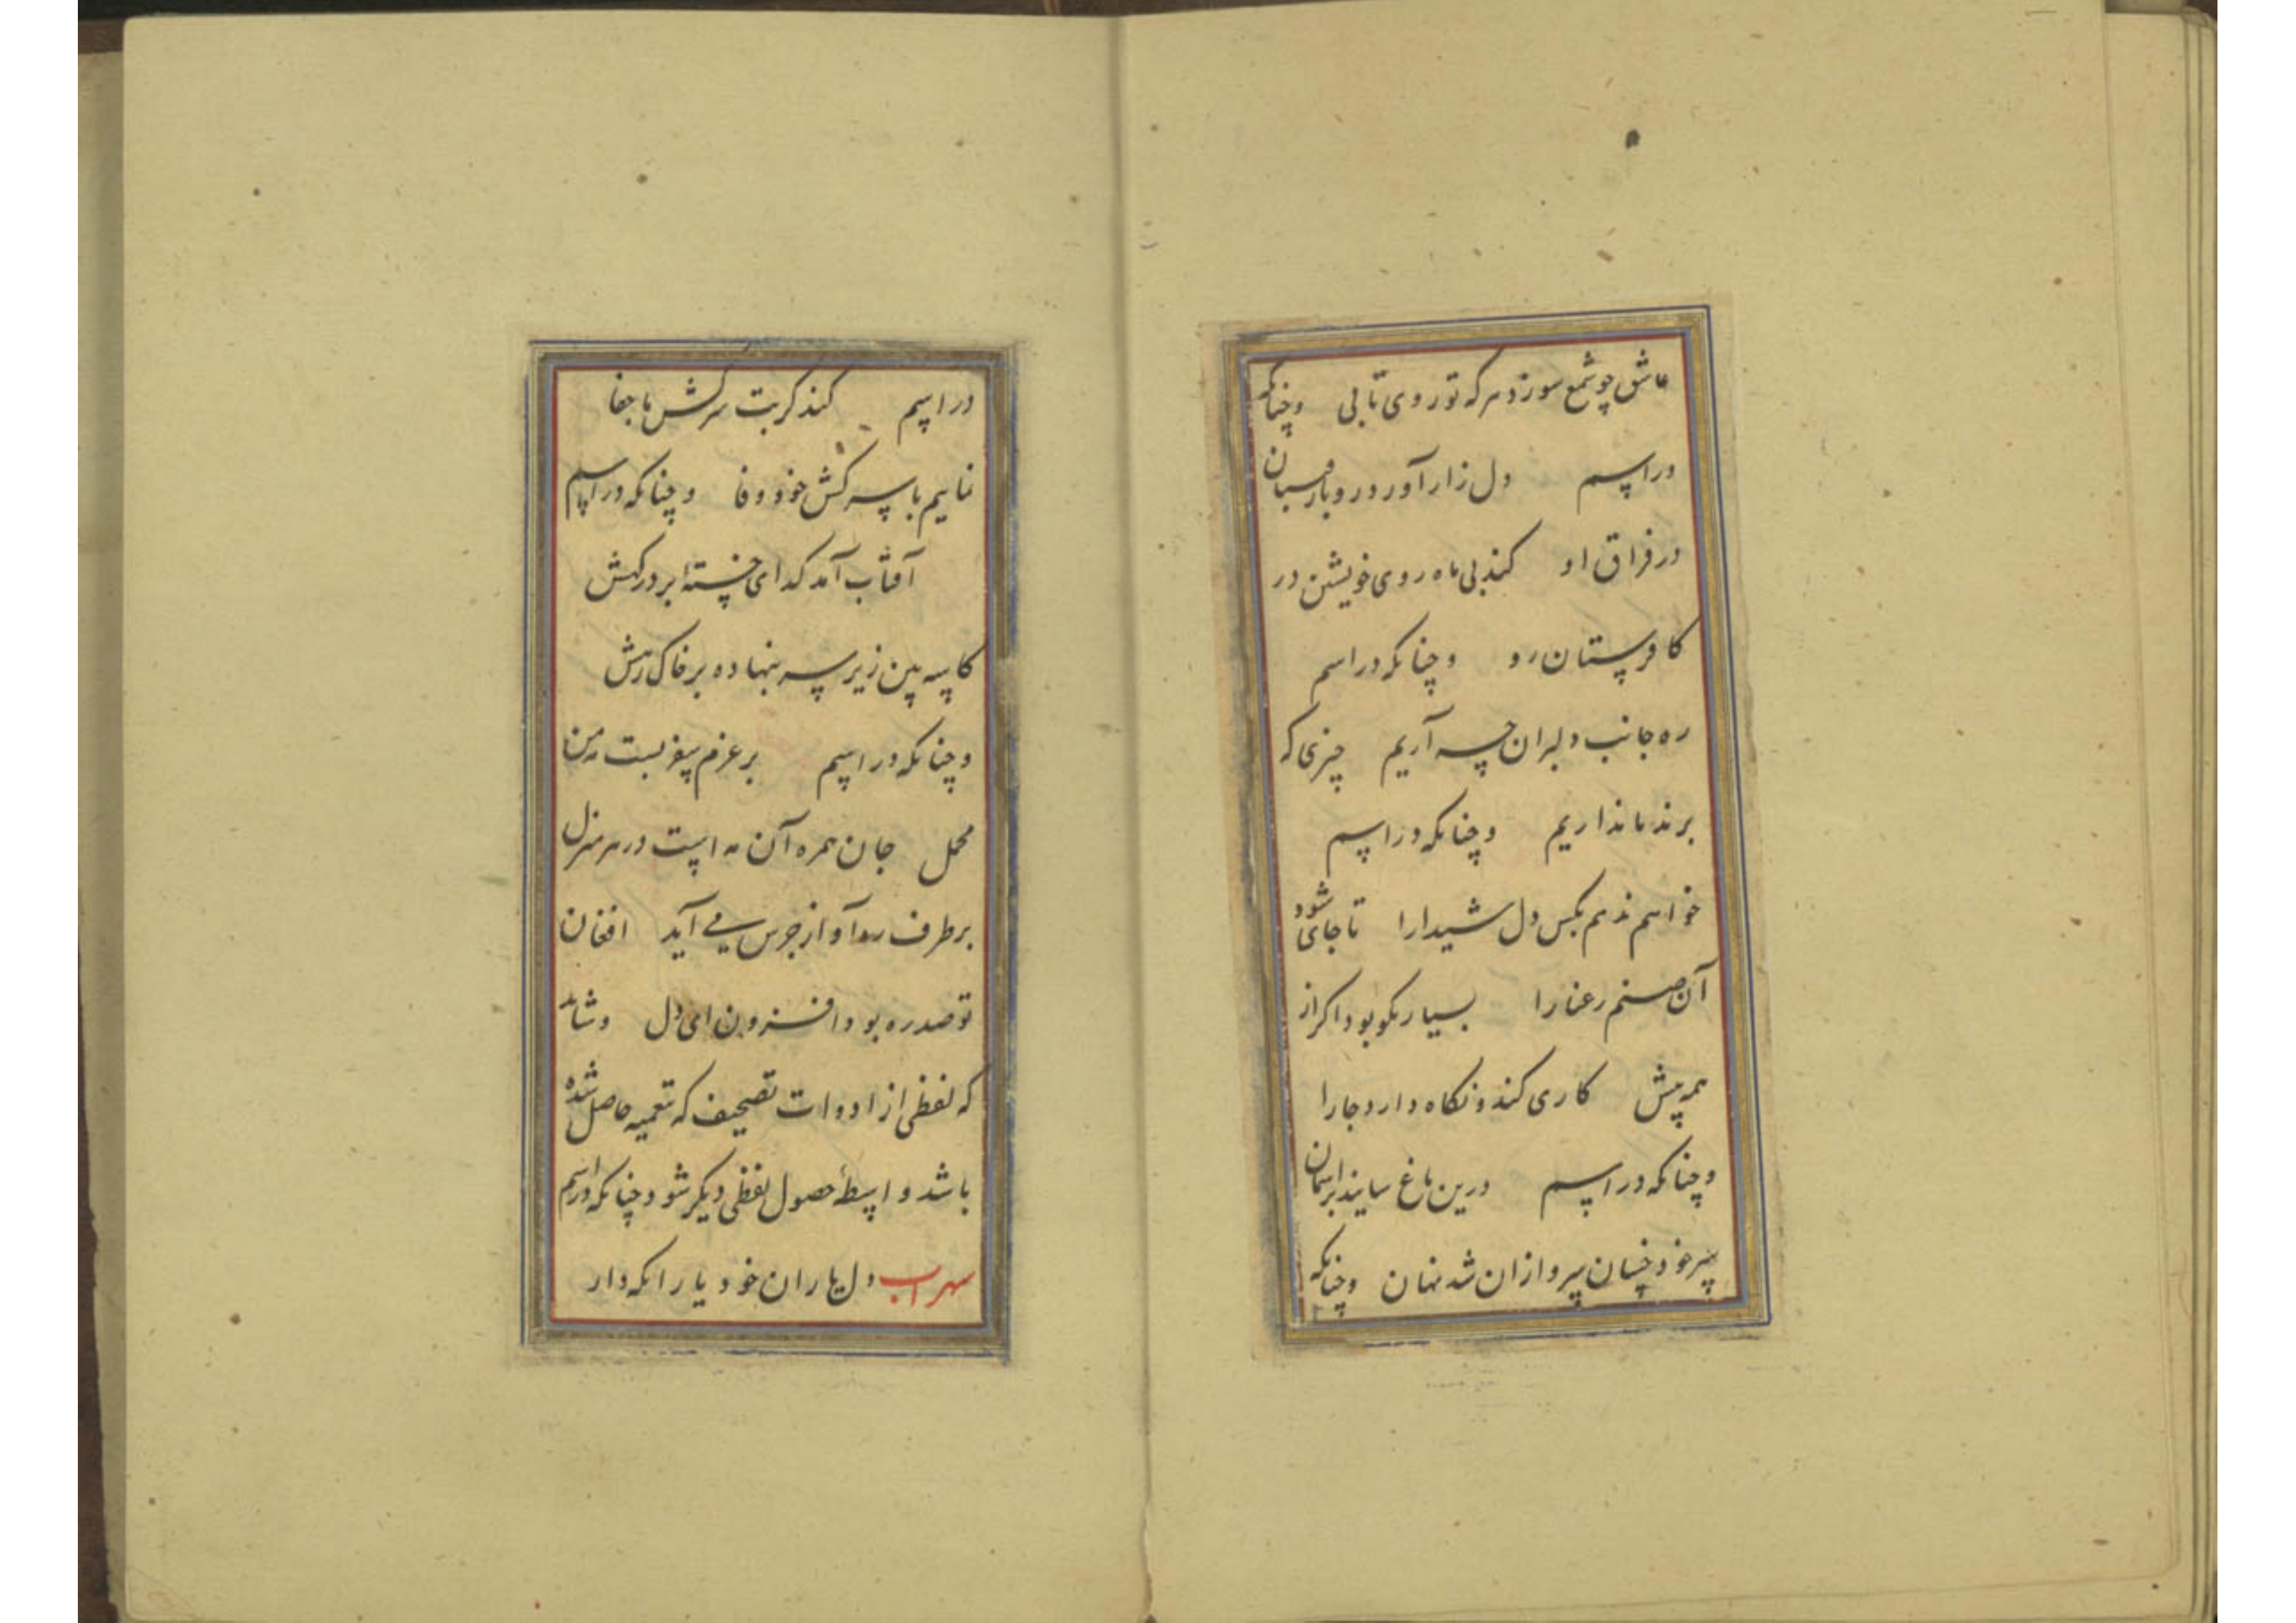 عاشق چو شمع سوزد هر که تو روی تابی وچنانکه
در اسم دل زار آورد رو با رفیقان
در فراق او کند بی ماه روی خویشتن در
کافرستان رو وچنانکه در اسم
ره جانب دلبران چسه آریم چیزی که
برند ما نداریم وچنانکه در اسم
خواهم ندهم بکس دل شیدا را تا جای شود
آن صنم رعنا را بسیار نکو بود اگر از
همه پیش کاری کند و نگاه دارد جا را
وچنانکه در اسم درین باغ سایند بر آسمان
سر خود چسان سرو ازان شد نهان وچنانکه
در اسم کند گر بت سرکش ما جفا
نماییم با سرکش خود وفا وچنانکه در اسم
آفتاب آمد گدای خستهٔ بر درگهش
کاسه بین زیر سر بنهاده بر خاک رهش
وچنانکه در اسم بر عزم سفر بست مه من
محمل جان همره آن مه است در هر منزل
بر طرف ره آواز جرس می آید افغان
تو صد ره بود افزون ای دل و شاید
که لفظی از ادوات تصحیف که بتعمیه حاصل شده
باشد واسطهٔ حصول لفظی دیگر شود چنانکه در اسم
سهراب دل یاران خود یار انکه دار